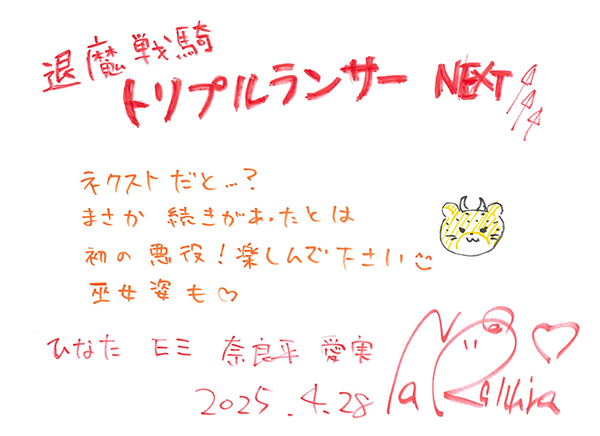 退魔戦騎
トリプルランサー NEXT
ネクストだと…?
まさか 続きがあったとは
初の悪役!楽しんで下さい
巫女姿も♡
ひなた エミ 奈良平 愛実
2025.4.28